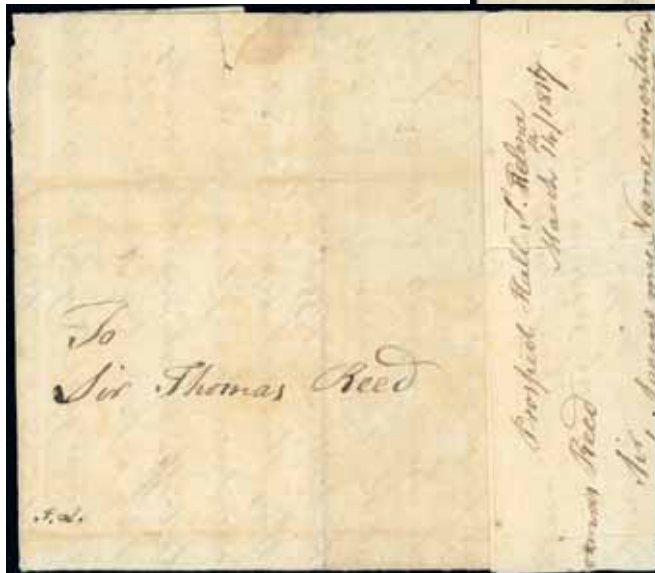 To
Sir Thomas Reed
Prospect Hall St. Helena
March 14th/1817
omas Reed
Sir
my Name mention